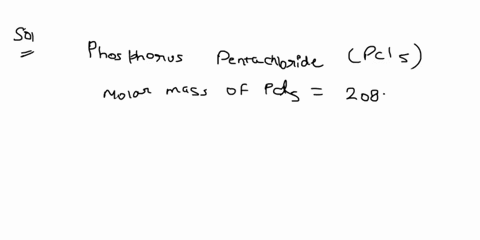 Sol
Phosphorus Pentachloride (PCl5)
Molar mass of PCl5 = 208.